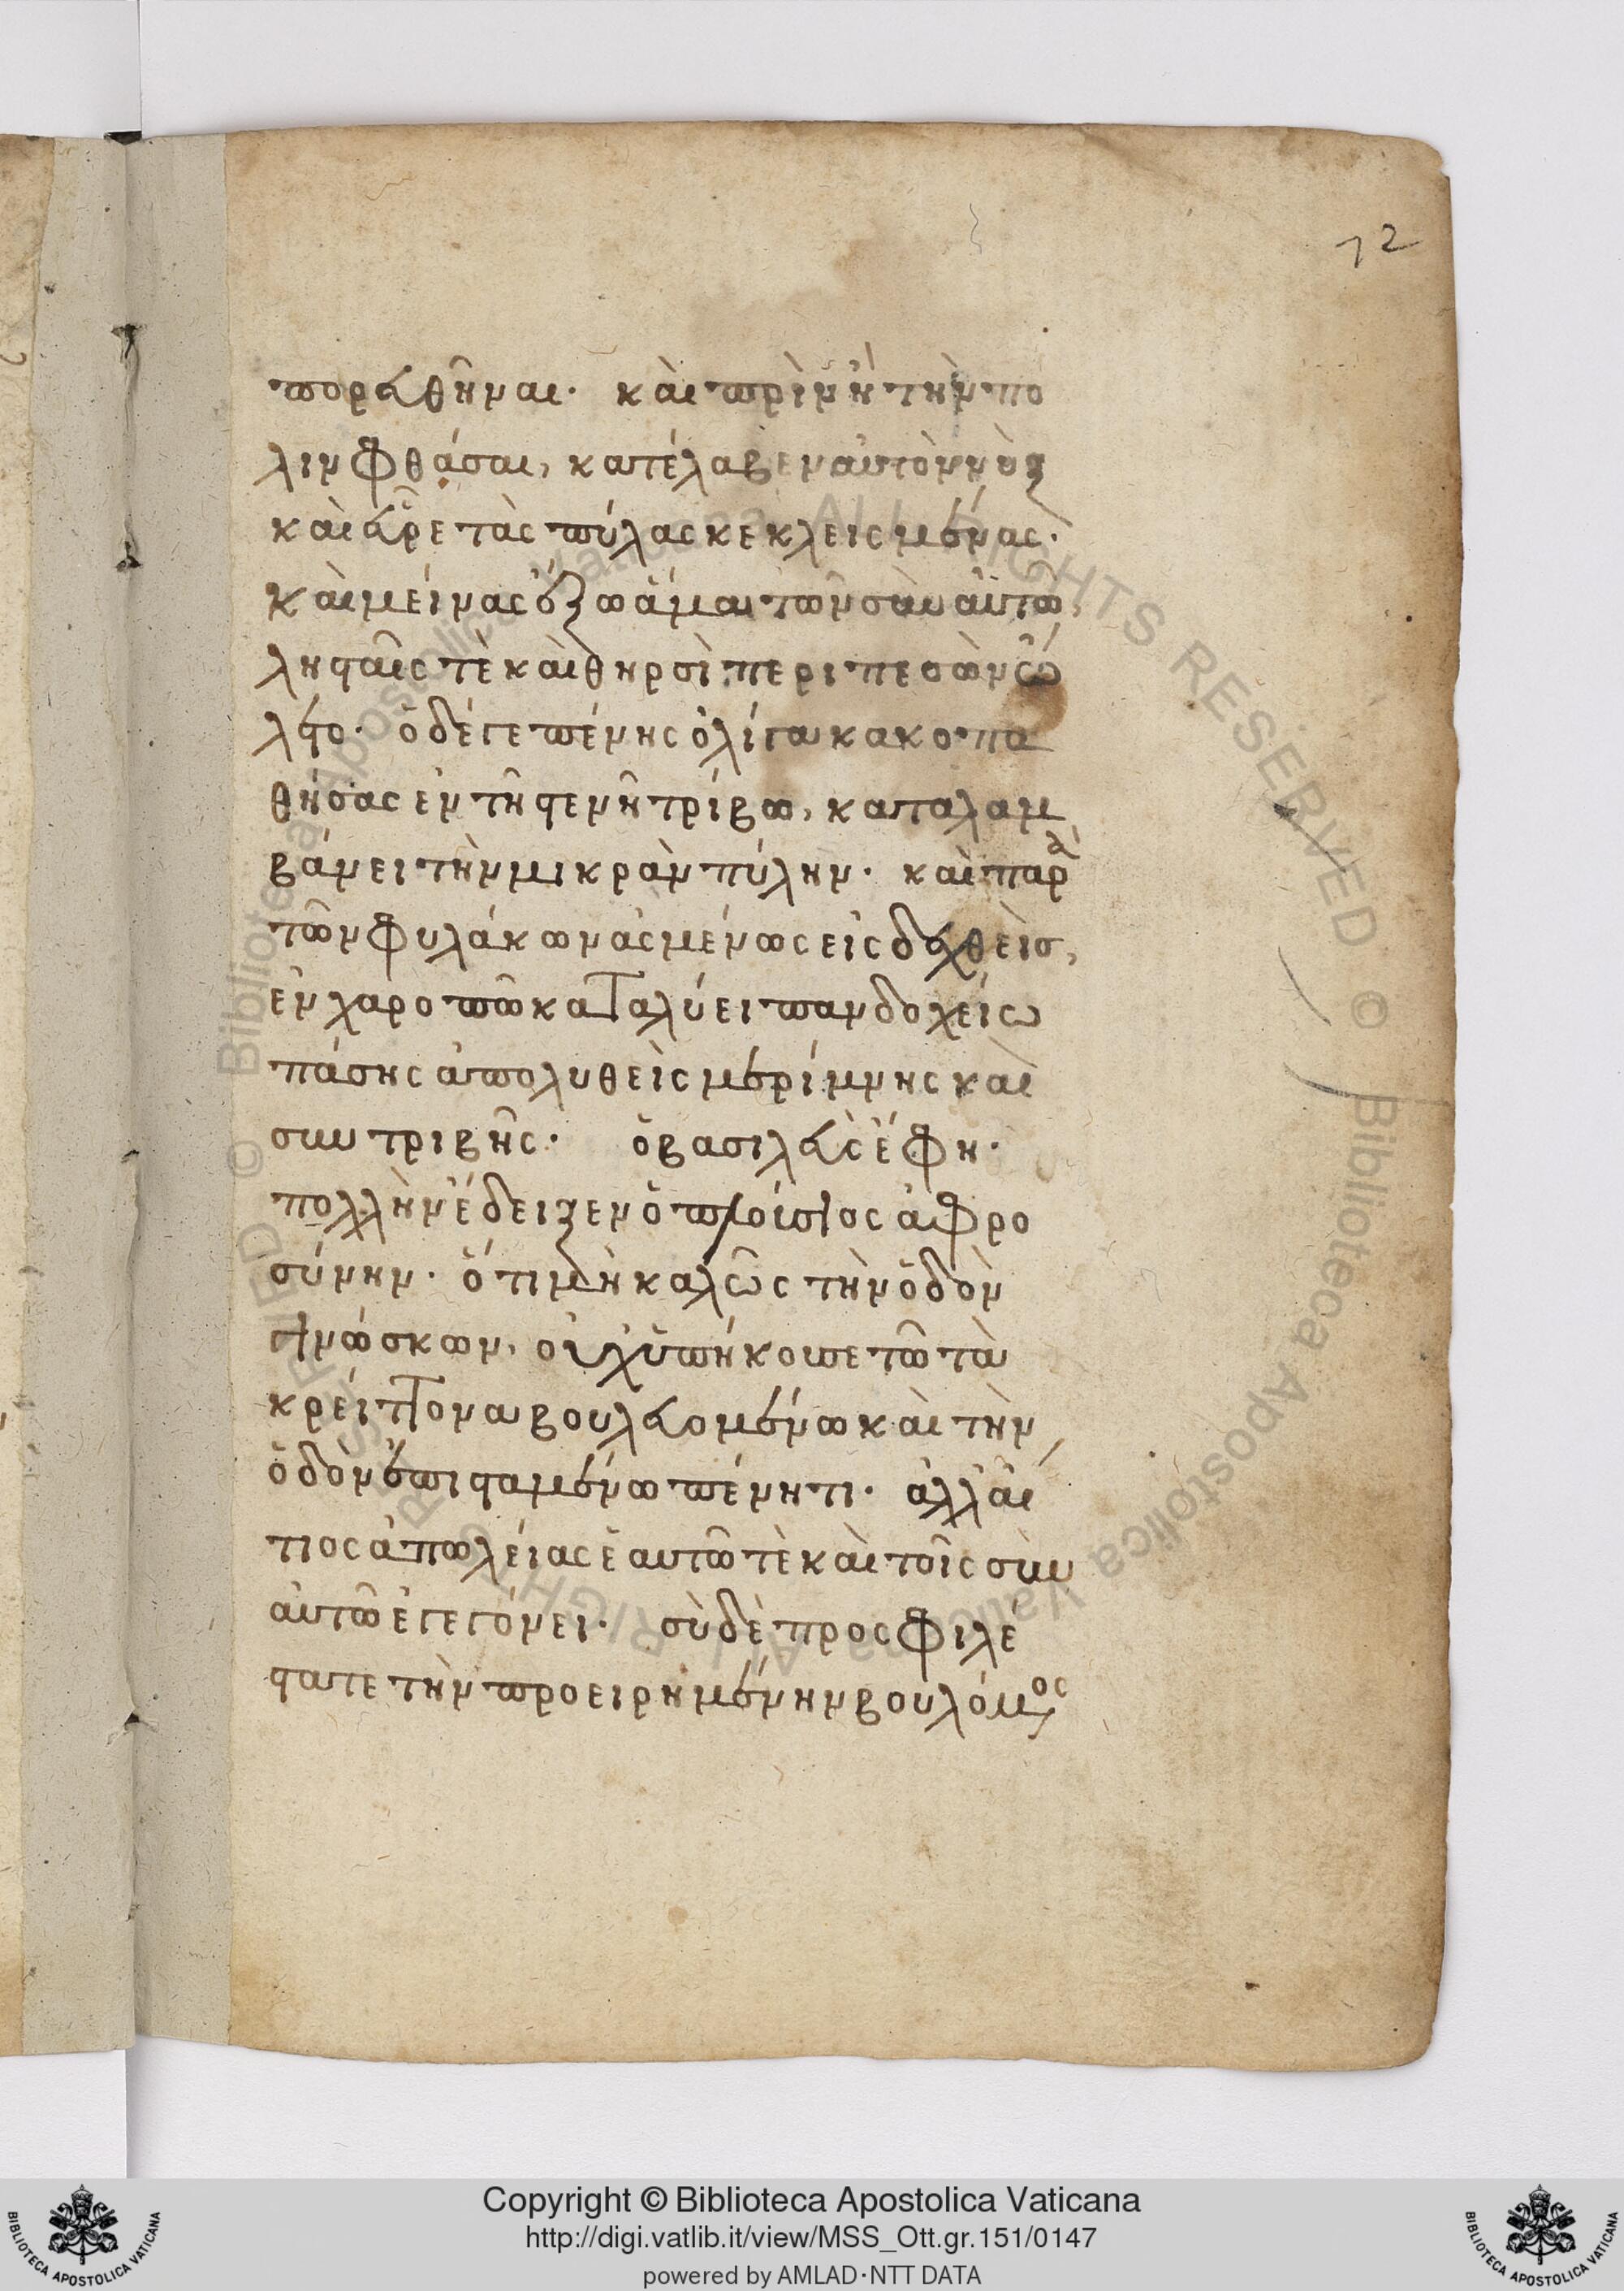 72
πορευθῆναι· καὶ πρὶν ἢ τὴν πό
λιν φθάσαι, κατέλαβεν αὐτὸν νὺξ
καὶ εὗρε τὰς πύλας κεκλεισμένας·
καὶ μείνας ἔξω ἅμα τῶν σὺν αὐτῶ,
λησταῖς τὲ καὶ θηρσὶ περιπεσὼν ὤ
λετο· ὁ δέ γε πένης ὀλίγα κακοπα
θήσας ἐν τῆ στενῆ τρίβω, καταλαμ
βάνει τὴν μικρὰν πύλην· καὶ παρὰ
τῶν φυλάκων ἀσμένως εἰσδεχθεὶς,
ἐν χαροπῶ καταλύει πανδοχείω
πάσης ἀπολυθεὶς μερίμνης καὶ
συντριβῆς· ὁ βασιλεὺς ἔφη·
πολλὴν ἔδειξεν ὁ πλούσιος ἀφρο
σύνην· ὅτι μὴ καλῶς τὴν ὁδὸν
γινώσκων, οὐχ ὑπήκουσε τῶ τὰ
κρείττονα βουλευομένω καὶ τὴν
ὁδὸν ἐπισταμένω πένητι· ἀλλ' αἴ
τιος ἀπωλείας ἑαυτῶ τὲ καὶ τοῖς σὺν
αὐτῶ ἐγεγόνει· σὺ δὲ προσφιλέ
στατε τὴν προειρημένην βουλόμενος
Copyright © Biblioteca Apostolica Vaticana
http://digi.vatlib.it/view/MSS_Ott.gr.151/0147
powered by AMLAD·NTT DATA
BIBLIOTECA APOSTOLICA VATICANA
BIBLIOTECA APOSTOLICA VATICANA